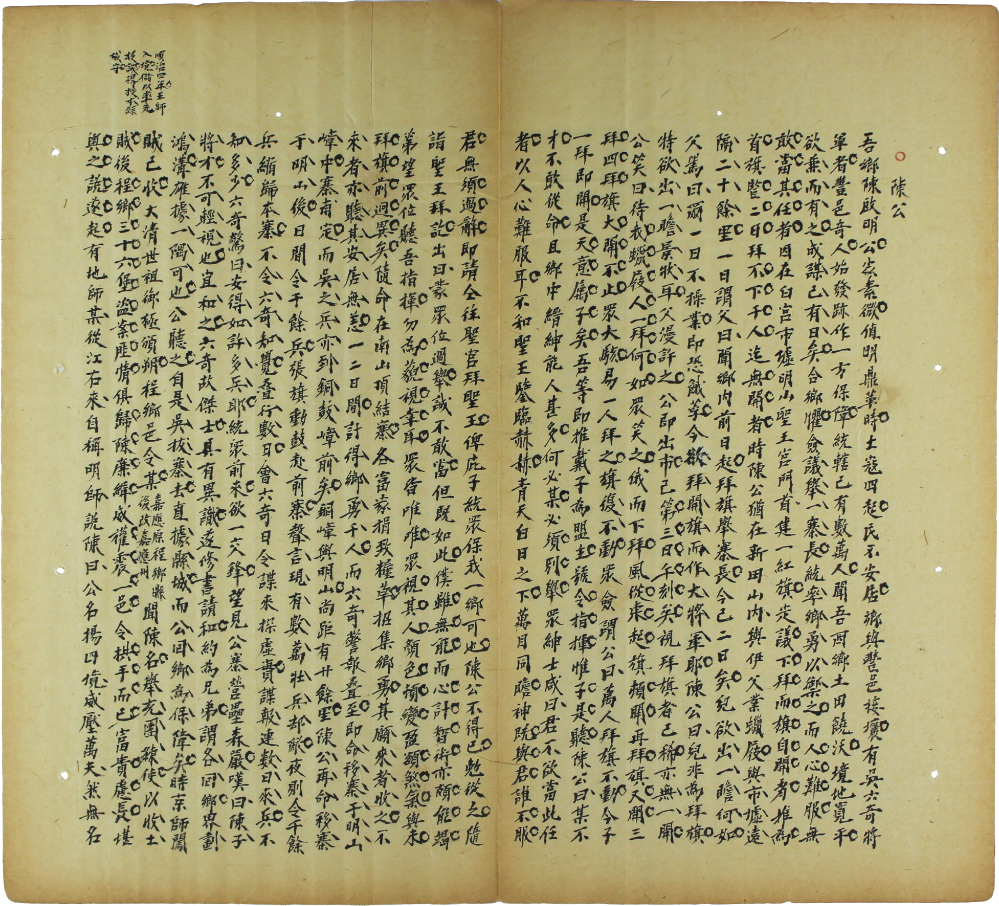 陳公
吾鄉陳啟明公崇素微值明鼎革時土寇四起民不安居鄉與豐邑接壤有吳六奇將
軍者豐邑奇人始發跡作一方保障統轄已有數萬人聞吾酉鄉土田饒沃境地寬平
欲兼而有之成謀已有日矣合鄉懼僉議舉一寨長統率鄉勇以禦之而人心難服無
敢當其任者因在臼宮市墟明山聖王宮門首建一紅旗定議下拜而旗自開者推為
首旗豎二日拜不下千人迄無開者時陳公猶在新田山內與伊父業蠟屐與市墟遠
隔二十餘里一日謂父曰聞鄉內前日起拜旗舉寨長今已二日矣兒欲出一瞻何如
父罵曰爾一日不操業即恐餓莩今欲拜開旗而作大將軍耶陳公曰兒非為拜旗
特欲出一瞻景狀耳父漫許之公即出市已第三日午刻矣視拜旗者已稀亦無一開
公笑曰待我蠟屐人一拜何如眾笑之俄而下拜風從東起旗頻開再拜旗又開三
拜四拜旗大開不止眾大駭易一人拜之旗復不動眾僉謂公曰萬人拜旗不動今子
一拜即開是天意屬子矣吾等即推戴子為盟主號令指揮惟子是聽陳公曰某不
才不敢從命且鄉中縉紳能人甚多何必某必須別舉眾紳士咸曰君不欲當此任
者以人心難服耳不和聖王鑒臨赫赫青天白日之下萬目同瞻神既與君誰不服
君無須過辭即請仝往聖宮拜聖王俾庇子統眾保我一鄉可也陳公不得已勉從之隨
詣聖王拜訖出曰蒙眾位過舉誠不敢當但既如此僕雖無能而心計智術亦頗能竭
第望眾位聽吾指揮勿為藐視幸耳眾皆唯唯眾視其人顏色頓變盈頤然氣與未
拜旗前迥異矣隨命在南山頂結寨各富家捐致糧草招集鄉勇其願來者收之不
來者亦聽其安居無恙一二日間計得鄉勇千人而六奇警報叠至即命移寨于明山
嶂中寨甫定而吳之兵亦到銅鼓嶂前矣銅嶂與明山尚距有廿餘里陳公再命移寨
于明山後日間令千餘兵張旗動鼓赴前寨聲言現有數萬壯兵却敵夜則令千餘
兵縮歸本寨不令六奇知覺叠行數日會六奇日令諜來探虛實諜報連數日來兵不
知多少六奇驚曰安得如許多兵耶統眾前來欲一交鋒望見公寨營壘森嚴嘆曰陳子
將才不可輕視也宜和之六奇故傑士具有異識遂修書請和約為兄弟謂各回鄉界劃
鴻溝雄據一隅可也公聽之自是吳拔寨去直據縣城而公回鄉為保障矣時京師闖
賊已收大清世祖御極頒朔程鄉邑令某嘉應原程鄉縣後改嘉應州聞陳名舉充團練使以收土
賊後程鄉三十六堡盜案歷情俱歸陳廉緝威權震一邑令拱手而已富貴慮長堪
輿之說遂起有地師某從江右來自稱明師說陳曰公名揚四境威壓萬夫然無名
順治四年王師
入境偕以率先
投誠得授本縣
城守